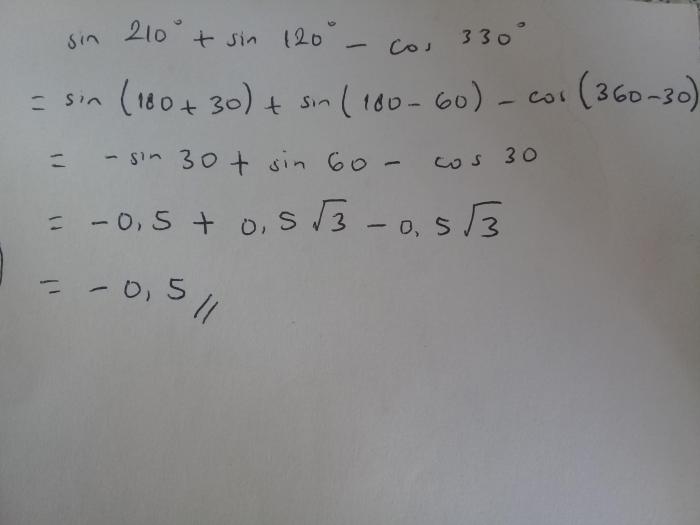 sin 210° + sin 120° - cos 330°
= sin (180 + 30) + sin (180 - 60) - cos (360 - 30)
= - sin 30 + sin 60 - cos 30
= - 0,5 + 0,5 √3 - 0,5 √3
= - 0,5 //